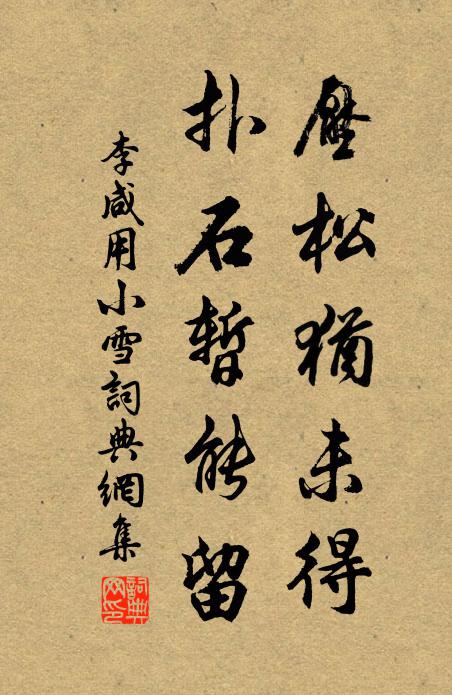 壓松猶未得
扑石暫能留
李咸用小雪詞典網集
詞典網印